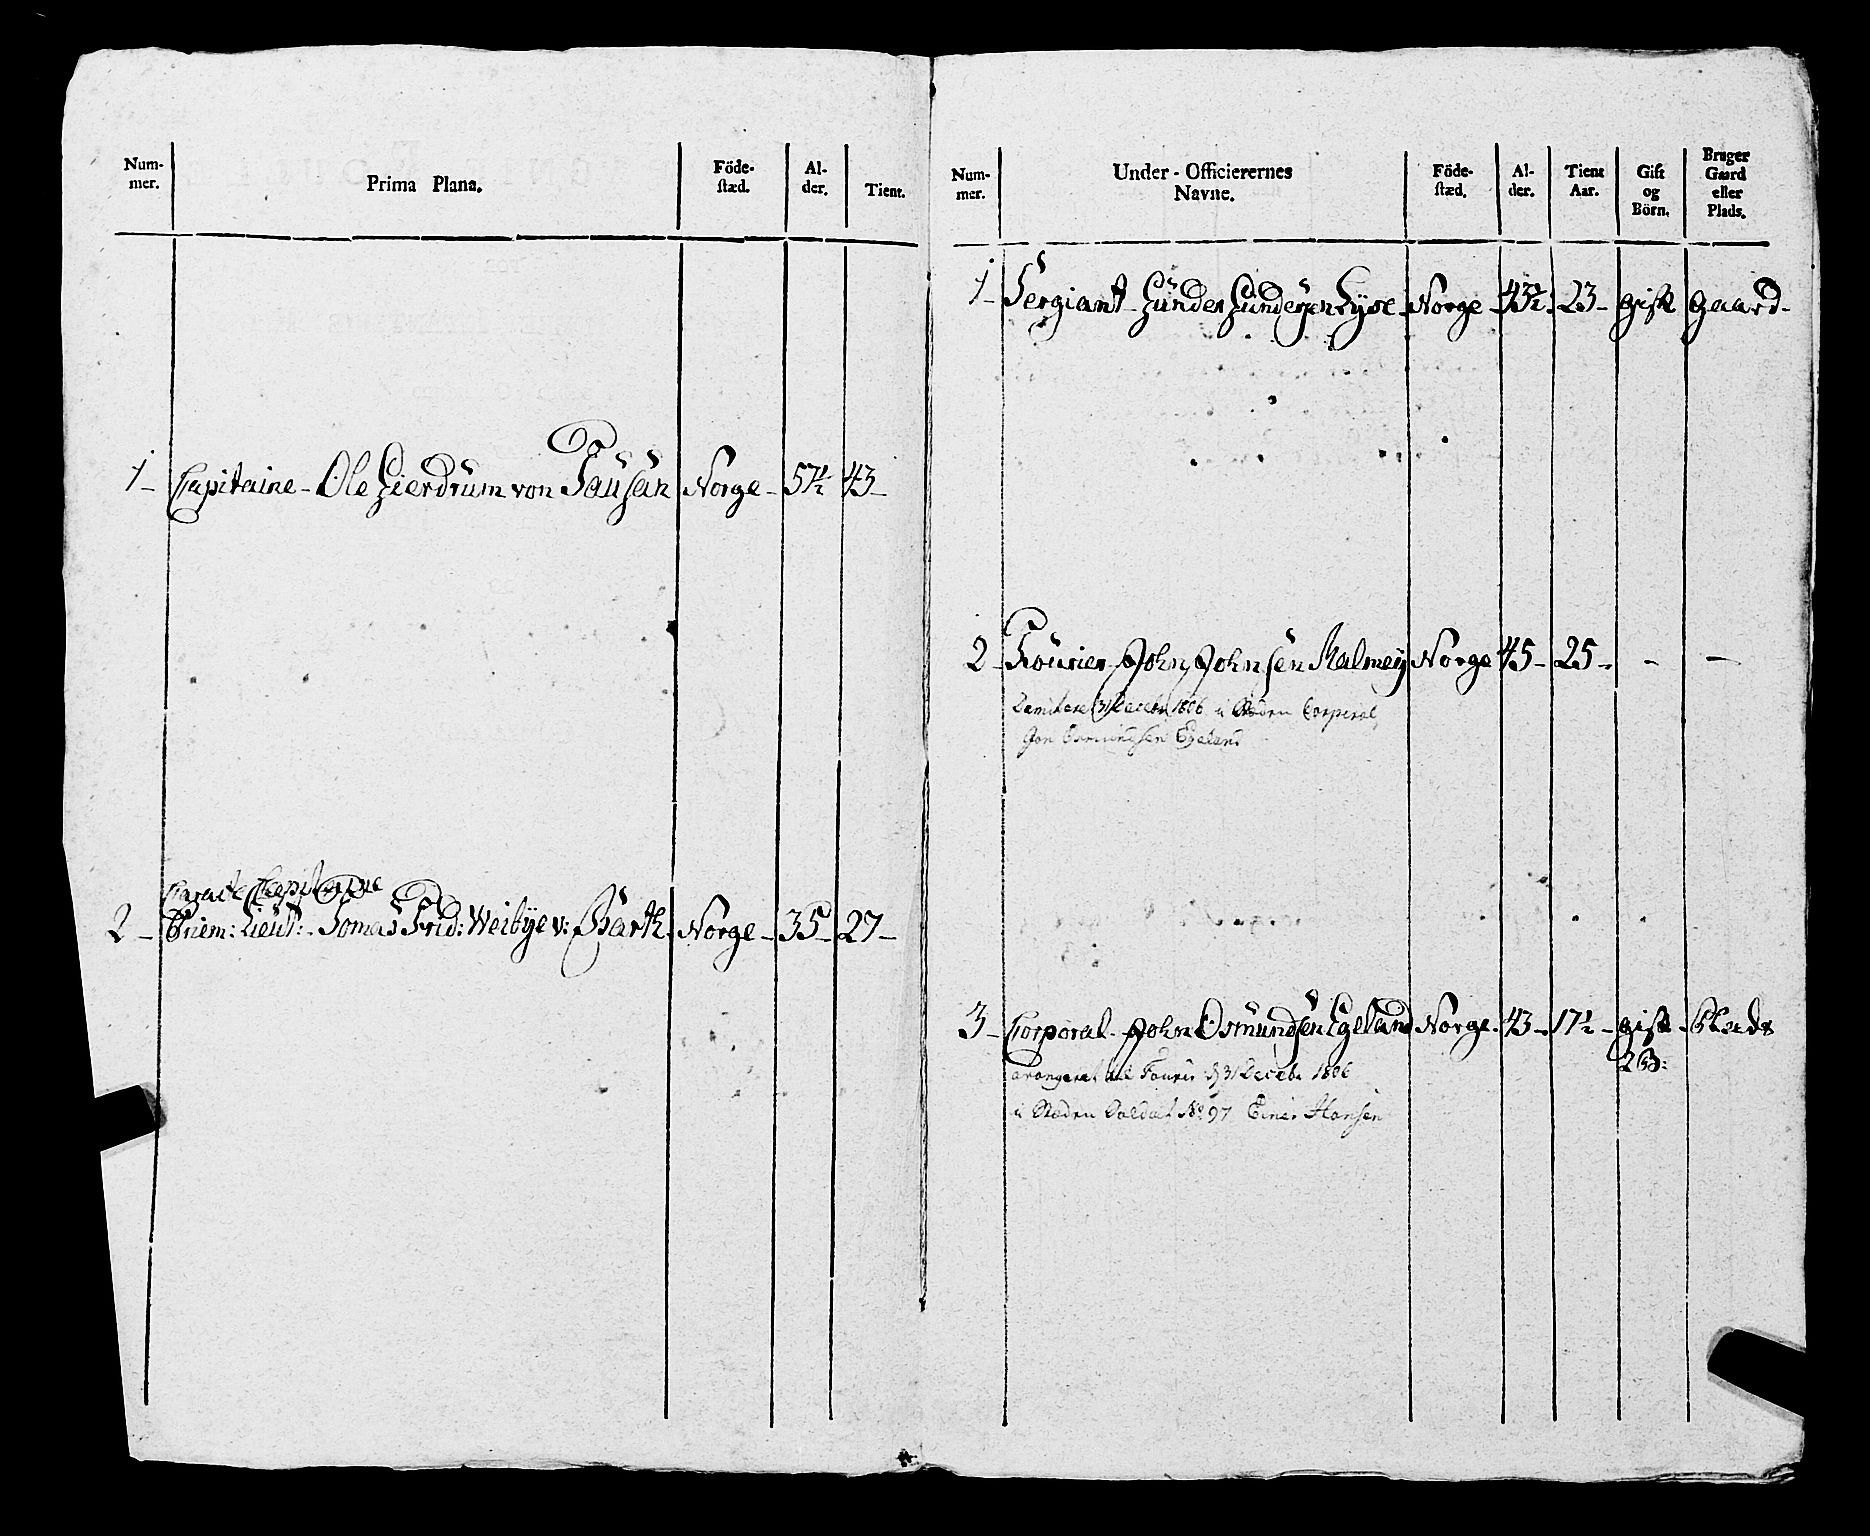 Num-
mer.
Prima Plana.
Föde-
stæd.
Al-
der.
Tient.
1 Capitaine - Ole Gierdrum von Tausan Norge 57½ 43
Caract Capitaine
2 Priem: Lieut: - Tomas Frid: Weibÿe v: Barth Norge 35 27
Num-
mer.
Under-Officierernes
Navne.
Föde-
stæd.
Al-
der.
Tient
Aar.
Gift
og
Börn.
Bruger
Gaard
eller
Plads.
1 Sergiant Gunder Gundersen Lyse Norge 43½ 23 gift Gaard
2 Fourier John Johnsen Malmeÿ Norge 45 25 - -
31 Decebr 1806 i Stæden Corporal
Jon Osmundsen Egeland
3 Corporal John Osmundsen Egeland Norge 43 17½ gift
2 B:
arangeret til Fourir d 31 Decebr 1806
i Stæden Soldat No 97 Einer Hansen